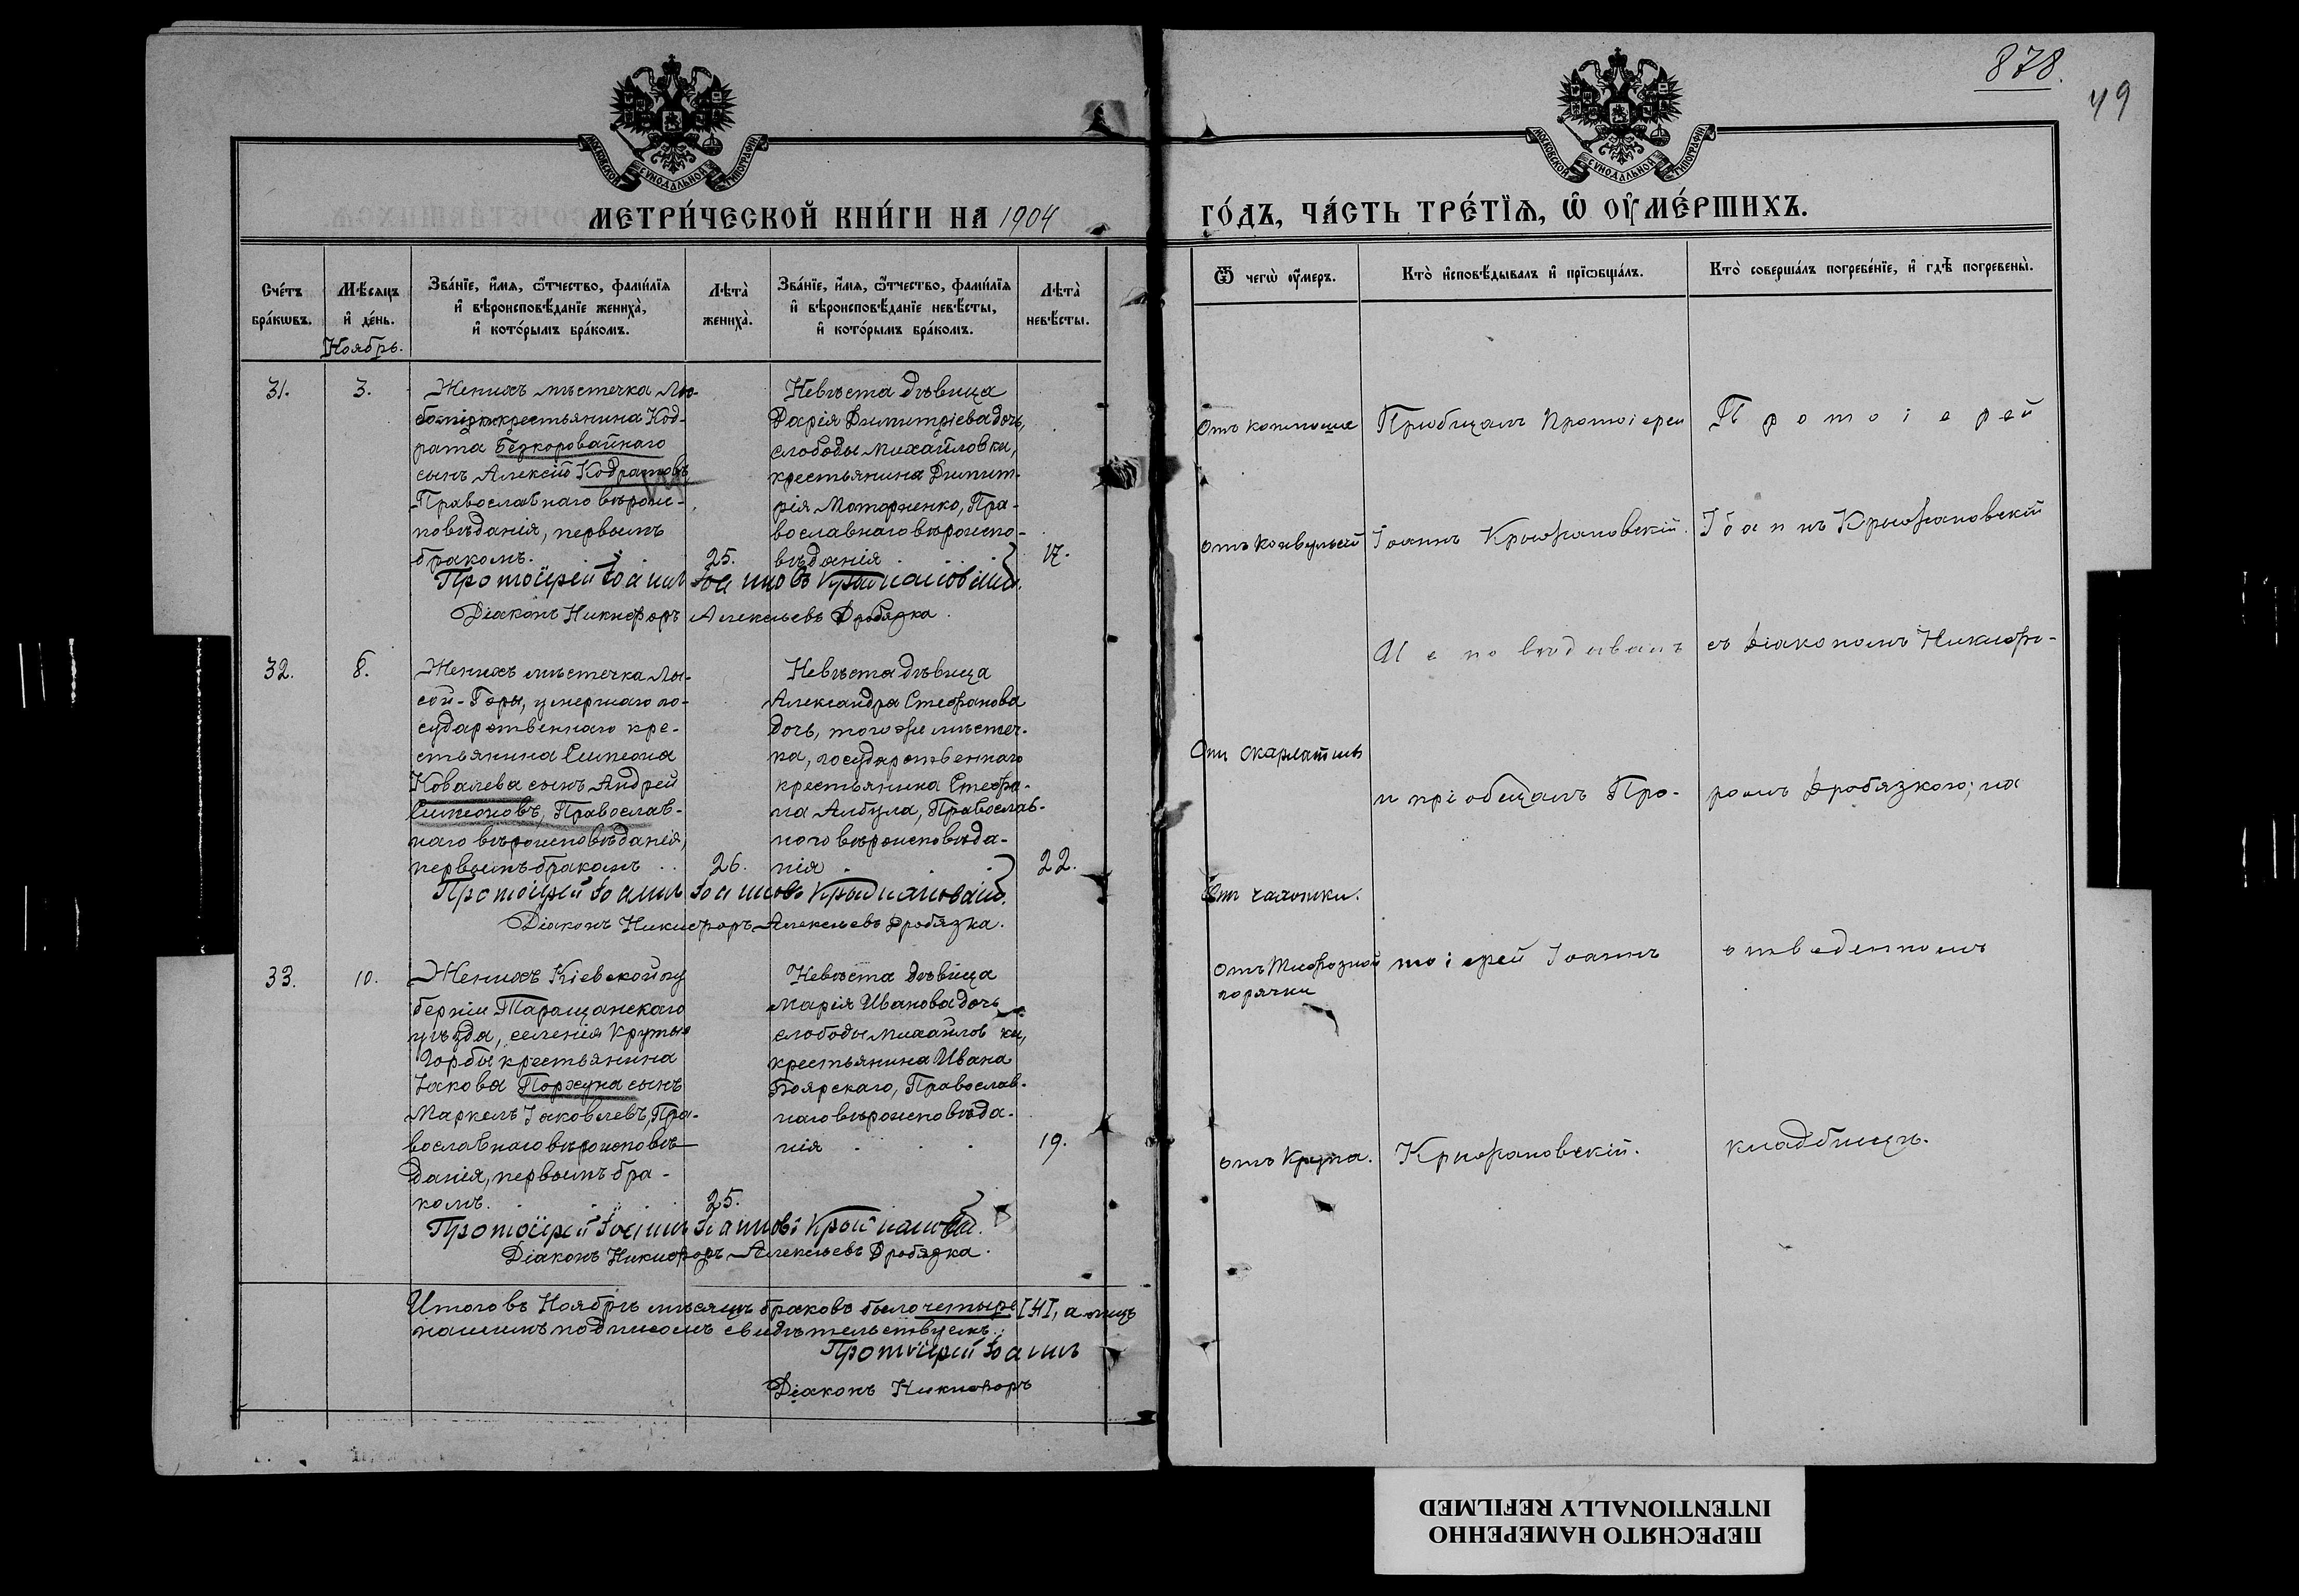 878.
49
МОСКОВСКОЙ СУНОДАЛЬНОЙ ТИПОГРАФІИ
МОСКОВСКОЙ СУНОДАЛЬНОЙ ТИПОГРАФІИ
МЕТРИ́ЧЕСКОЙ КНИ́ГИ НА 1904
Сче́тъ бра́кѡвъ.
Мѣ́сяцъ и҆ де́нь.
Ноябрь.
Зва́нїе, и҆́мя, ѻ҆́тчество, фами́лїя
и҆ вѣроисповѣ́данїе жениха̀,
и҆ кото́рымъ бра́комъ.
Лѣта̀ жениха̀.
Зва́нїе, и҆́мя, ѻ҆́тчество, фами́лїя
и҆ вѣроисповѣ́данїе невѣ́сты,
и҆ кото́рымъ бра́комъ.
Лѣта̀ невѣ́сты.
31.
3.
Женихъ мѣстечка
крестьянина Код-
рата Безкоровайнаго
сынъ Алексій Кодратовъ
Православнаго вѣроис-
повѣданія, первымъ
бракомъ.
25.
Невѣста дѣвица
Дарія Димитріева дочь,
слободы Михайловки,
крестьянина Димит-
рія Моторненко, Пра-
вославнаго вѣроиспо-
вѣданія
17.
Протоіерей Іоаннъ Іоанновъ Крыжановскій.
Діаконъ Никифоръ Алексѣевъ Дробязка.
32.
8.
Женихъ мѣстечка Лы-
сой-Горы, умершаго го-
сударственнаго кре-
стьянина Симеона
Ковалева сынъ Андрей
Симеоновъ, Православ-
наго вѣроисповѣданія,
первымъ бракомъ
26.
Невѣста дѣвица
Александра Стефанова
дочь, того же мѣстеч-
ка, государственнаго
крестьянина Стефа-
на Албула, Православ-
ного вѣроисповѣда-
нія
22.
Протоіерей Іоаннъ Іоанновъ Крыжановскій.
Діаконъ Никифоръ Алексѣевъ Дробязка.
33.
10.
Женихъ Кіевской гу
берніи Таращанскаго
уѣзда, селенія Крутые
Горбы крестьянина
Іакова Поржуна сынъ
Маркелъ Іаковлевъ, Пра-
вославнаго вѣроисповѣ-
данія, первымъ бра-
комъ.
25.
Невѣста дѣвица
Марія Иванова дочь
слободы Михайловки,
крестьянина Ивана
Боярскаго, Православ-
наго вѣроисповѣда-
нія
19.
Протоіерей Іоаннъ Іоанновъ Крыжановскій.
Діаконъ Никифоръ Алексѣевъ Дробязка.
Итого въ Ноябрѣ мѣсяцѣ браковъ было четыре [4],
нашимъ подписомъ свидѣтельствуемъ:
Протоіерей Іоаннъ
Діаконъ Никифоръ
ГО́ДЪ, ЧА́СТЬ ТРЕ́ТЇѦ, Ѡ҆ ОУ҆МЕ́РШИХЪ.
Ѿ чегѡ̀ оу҆́меръ.
Кто̀ и҆сповѣ́дывалъ и҆ прїѡбща́лъ.
Кто̀ соверша́лъ погребе́нїе, и҆ гдѣ̀ погребены̀.
Отъ коклюша
Пріобщалъ Протоіерей
Протоіерей
отъ конвульсій
Іоаннъ Крыжановскій.
Іоаннъ Крыжановскій
Исповѣдывалъ
съ Діакономъ Никифо-
Отъ скарлатины
и пріобщалъ Про-
ромъ Дробязкою; на
Отъ чахотки.
отъ Тифозной
горячки
тоіерей Іоаннъ
отведенномъ
отъ крупа.
Крыжановскій.
кладбищѣ.
ПЕРЕСНЯТО НАМЕРЕННО
INTENTIONALLY REFILMED